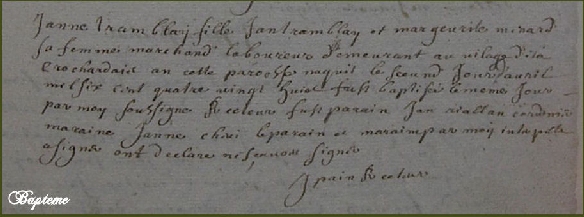 Janne tramblay fille Jan tramblay et margeurite minard
sa femme marchand laboureur demeurant au vilage de la
crochardais an cette paroesse naquit le second Jour d'auril
mil six cent quatre vingt huict fust baptisée le mesme Jour
par moy soubsigné Recteur fust parain Jan
maraine Janne le parain et maraine par moy interpelé
a signer ont declaré ne scavoir signer
Jpain Recteur
Bapteme